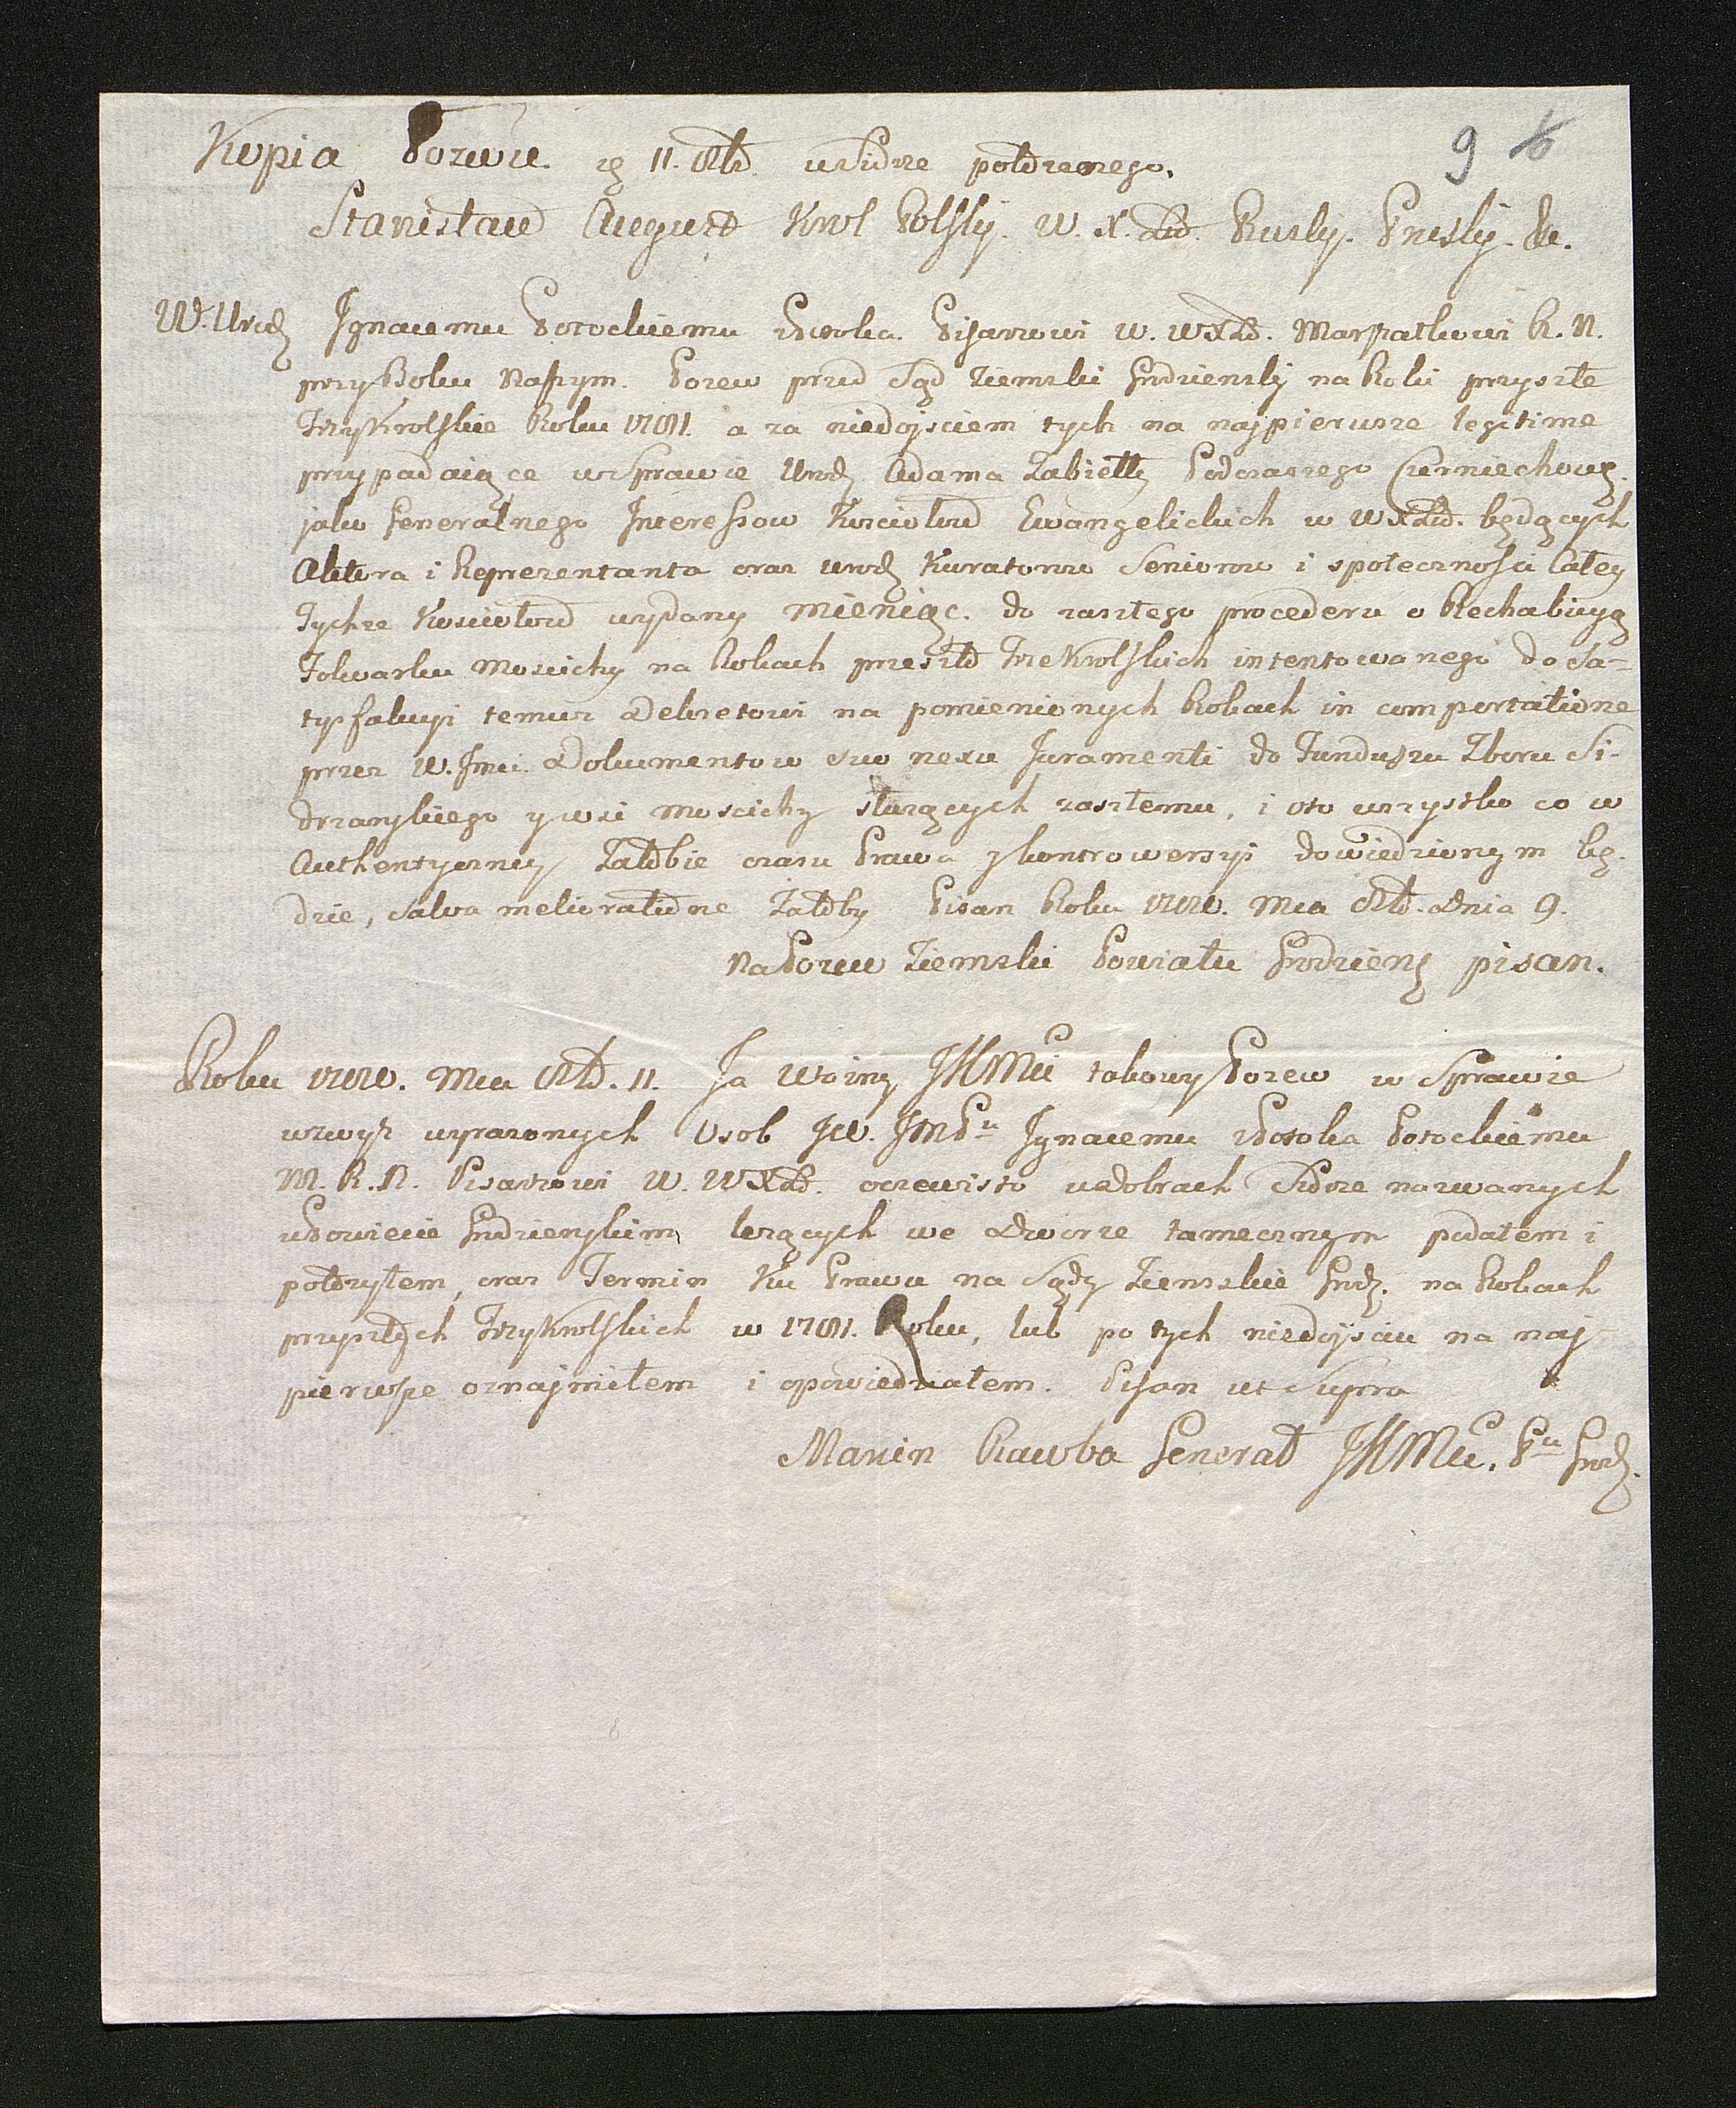 Kopia Pozwu z 11. 8br. w Sidrze położonego.
9 6
Stanisław August Krol Polsky. W. X. Litt. Rusky. Prusky. &c.
W. Urodz Ignacemu Potockiemu Pisarzowi W. W X Lit. Marszałkowi R. N.
przy Boku Naszym. Pozew przed Sąd Ziemski Grodziensky na Roki przyszłe
Trzykrolskie Roku 1781. a za niedojściem tych na najpierwsze legitime
przypadaiące w Sprawie Urodz Adama Zabiełły Podczaszego Czerniechowg.
jako Generalnego Interessow Kosciołow Ewangelickich w W X Lit. będących
Aktora i Reprezentanta oraz urodz Kuratorow Seniorow i społeczności Całey
Tychże Kosciołow wydany mieniąc. do zaszłego procederu o Rechabicyą
Folwarku Mościchy na Rokach przeszłd Trzekrolskich intentowanego do sa-
tysfakcyi temuż Dekretowi na pomienionych Rokach in comportatione
przez W. Jmci. Dokumentow sub nexu Juramenti do Funduszu Zboru Si-
drzanskiego y wsi Moscichy służących zaszłemu, i oto wszystko co w
Authentyczney Załobie czasu Prawa y kontrowersyi dowiedzionym bę-
dzie, salva melioratione Załoby Pisan Roku 1780. Mca 8br. Dnia 9.
Na Pozew Ziemski Powiatu Grodzieng pisan.
Roku 1780. Mca 8br. 11. Ja Wozny JKMci takowy Pozew w Sprawie
wzwyż wyrazonych Osob JW. JmPu Ignacemu Potockiemu
M. R. N. Pisarzowi W. W X Lit. oczewisto w Dobrach Sidrze nazwanych
w Powiecie Grodzienskim leżących we Dworze tamecznym podałem i
położyłem, oraz Termin Ku Prawu na Sądy Ziemskie Grodz. na Rokach
przyszłych Trzykrolskich w 1781. Roku, lub po tych niedojściu na naj-
pierwsze oznajmiłem i opowiedziałem. Pisan ut Supra
Marcin Generał JKMci. Pu Grodz.